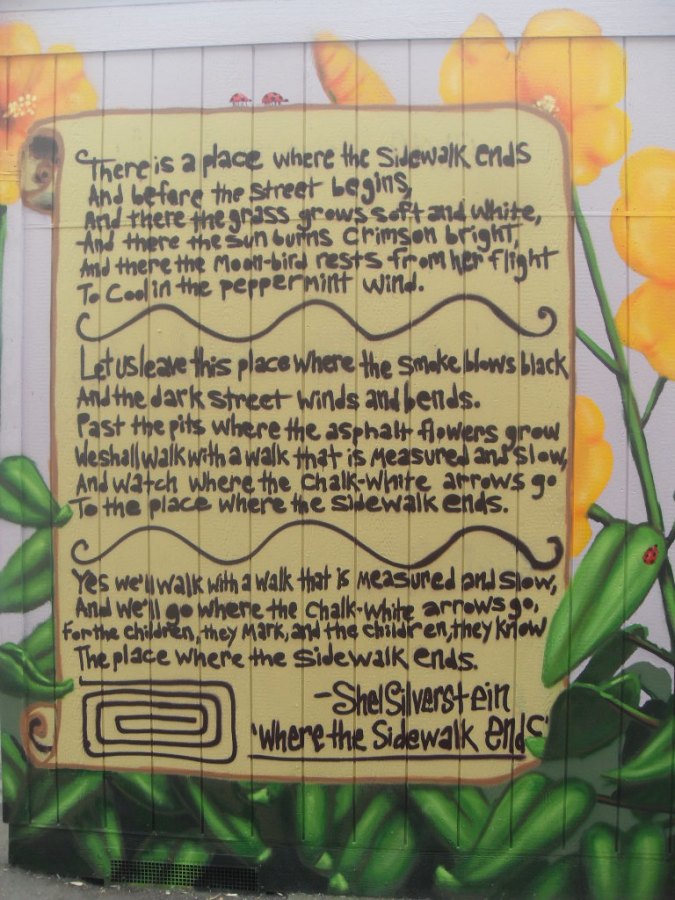 There is a place where the Sidewalk ends
And before the street begins,
And there the grass grows soft and white,
And there the sun burns crimson bright,
And there the Moon-bird rests from her flight
To Cool in the peppermint wind.
Let us leave this place where the smoke blows black
And the dark street winds and bends.
Past the pits where the asphalt flowers grow
We shall walk with a walk that is measured and slow,
And watch where the Chalk-White arrows go
To the place where the sidewalk ends.
Yes we'll walk with a walk that is measured and slow,
And we'll go where the Chalk-White arrows go,
For the children, they Mark, and the children, they know
The place where the Sidewalk ends.
-Shel Silverstein
"Where the Sidewalk ends"